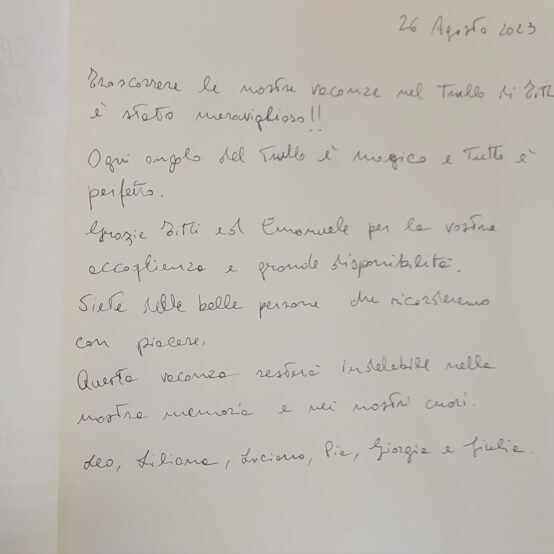 26 Agosto 2023
Trascorrere le nostre vacanze nel Trullo di Titti
è stato meraviglioso!!
Ogni angolo del Trullo è magico e tutto è
perfetto.
Grazie Titti ed Emanuele per la vostra
accoglienza e grande disponibilità.
Siete delle belle persone che ricorderemo
con piacere.
Questa vacanza resterà indelebile nella
nostra memoria e nei nostri cuori.
Leo, Liliana, Luciano, Pia, Giorgia e Giulia.